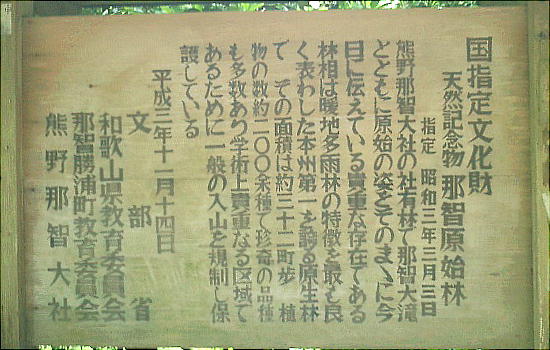 国指定文化財
天然記念物 那智原始林
指定 昭和三年三月三日
熊野那智大社の社有林で那智大滝
とともに原始の姿をそのまゝに今
日に伝えている貴重な存在である
林相は暖地多雨林の特徴を最も良
く表わした本州第一を誇る原生林
で その面積は約三十二町歩 植
物の数約二〇〇余種で珍奇の品種
も多数あり学術上貴重なる区域で
あるために一般の入山を規制し保
護している
平成三年十一月十四日
文部省
和歌山県教育委員会
那智勝浦町教育委員会
熊野那智大社